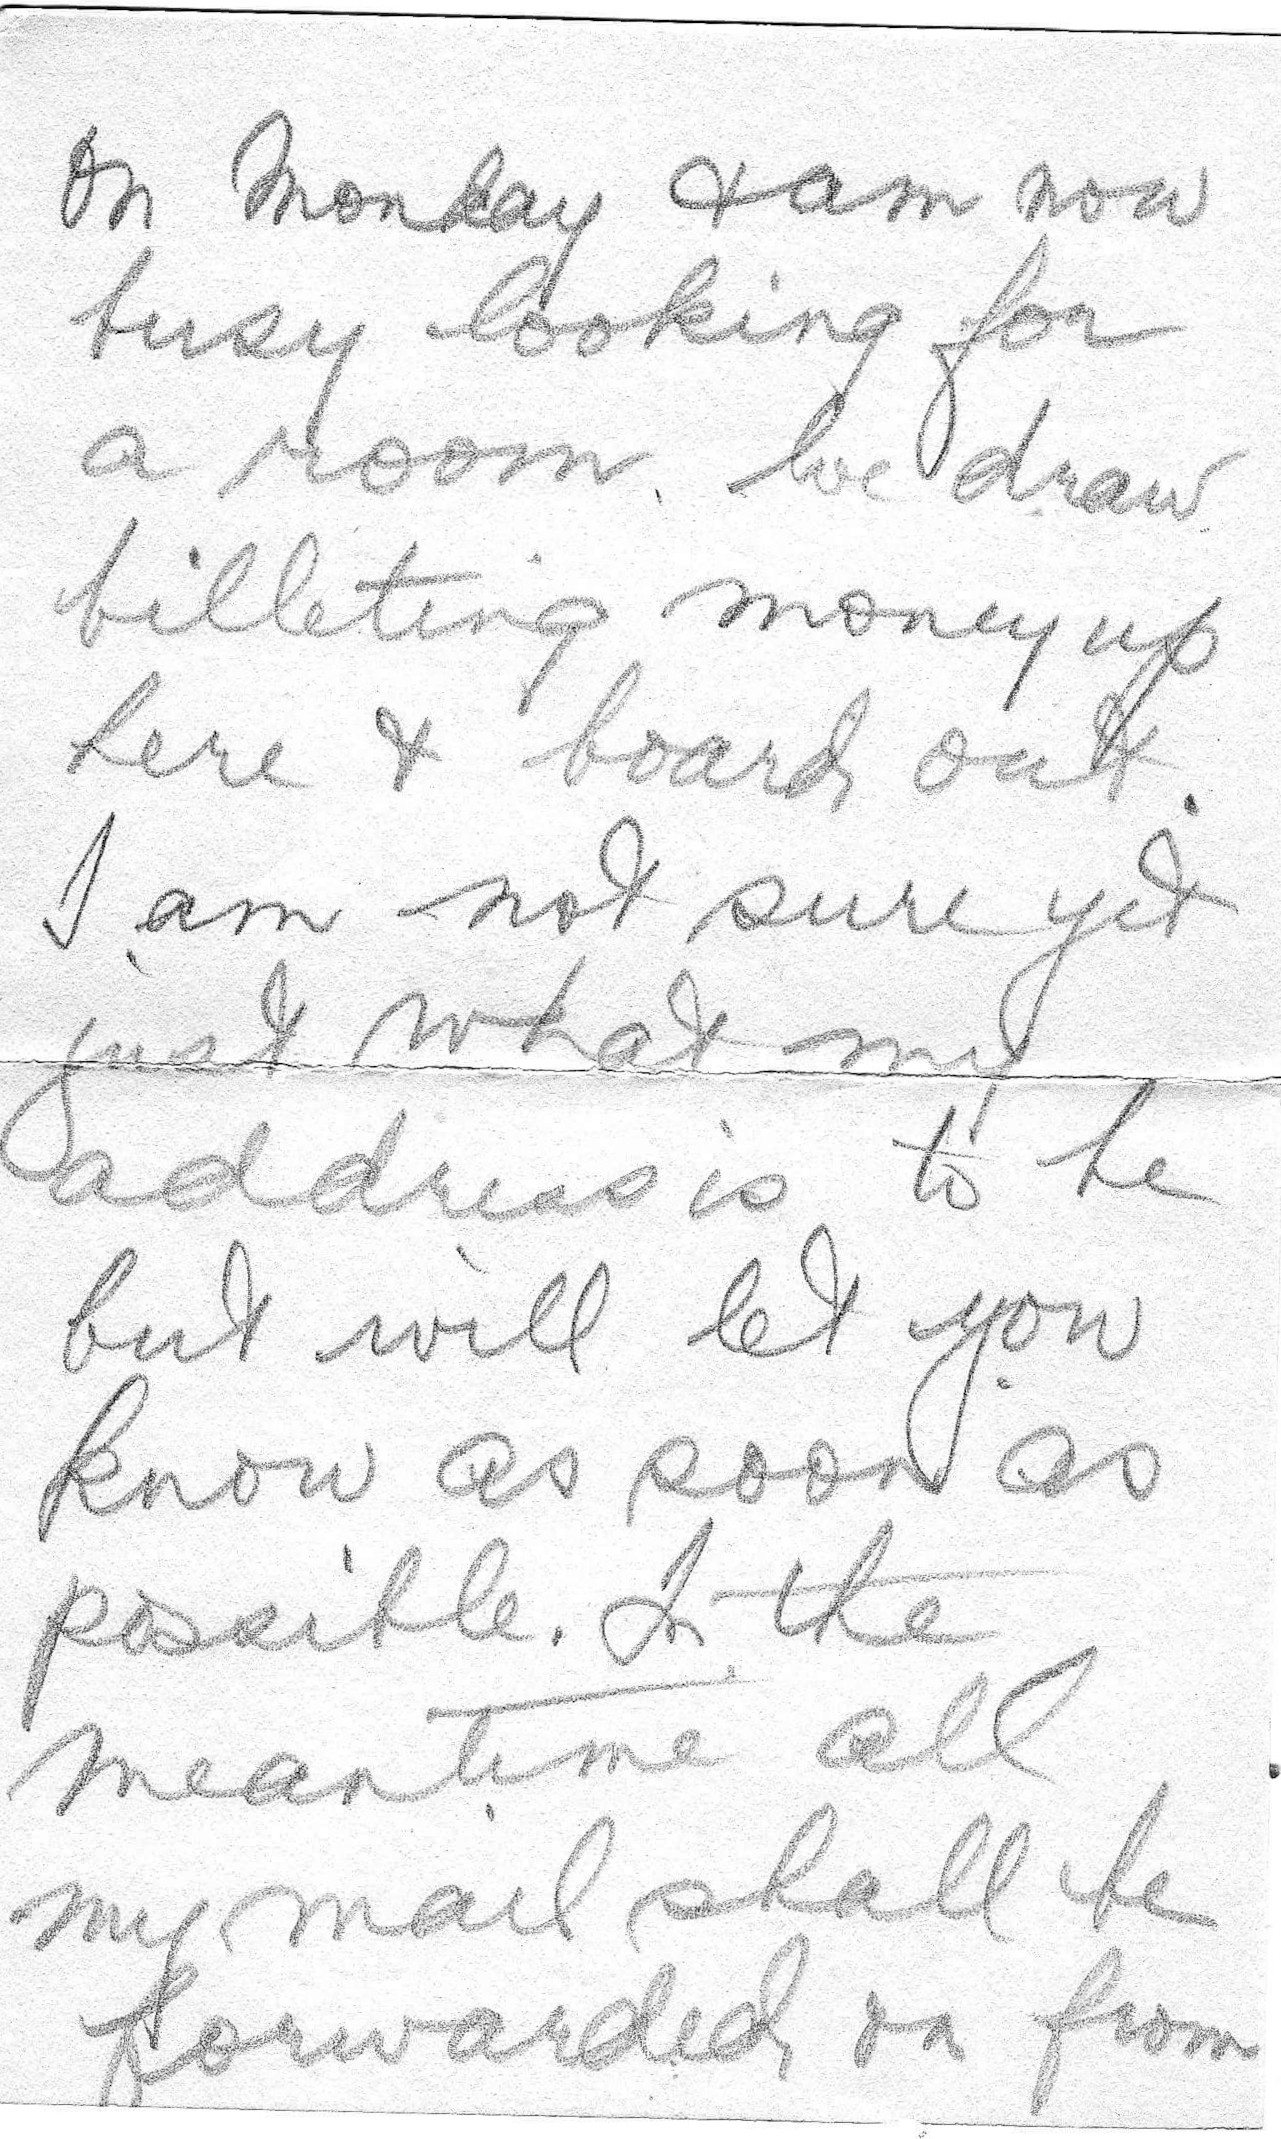 on Monday & am now
busy looking for
a room. We draw
billeting money up
here & board out.
I am not sure yet
just what my
address is to be
but will let you
know as soon as
possible. In the
meantime all
my mail shall be
forwarded on from